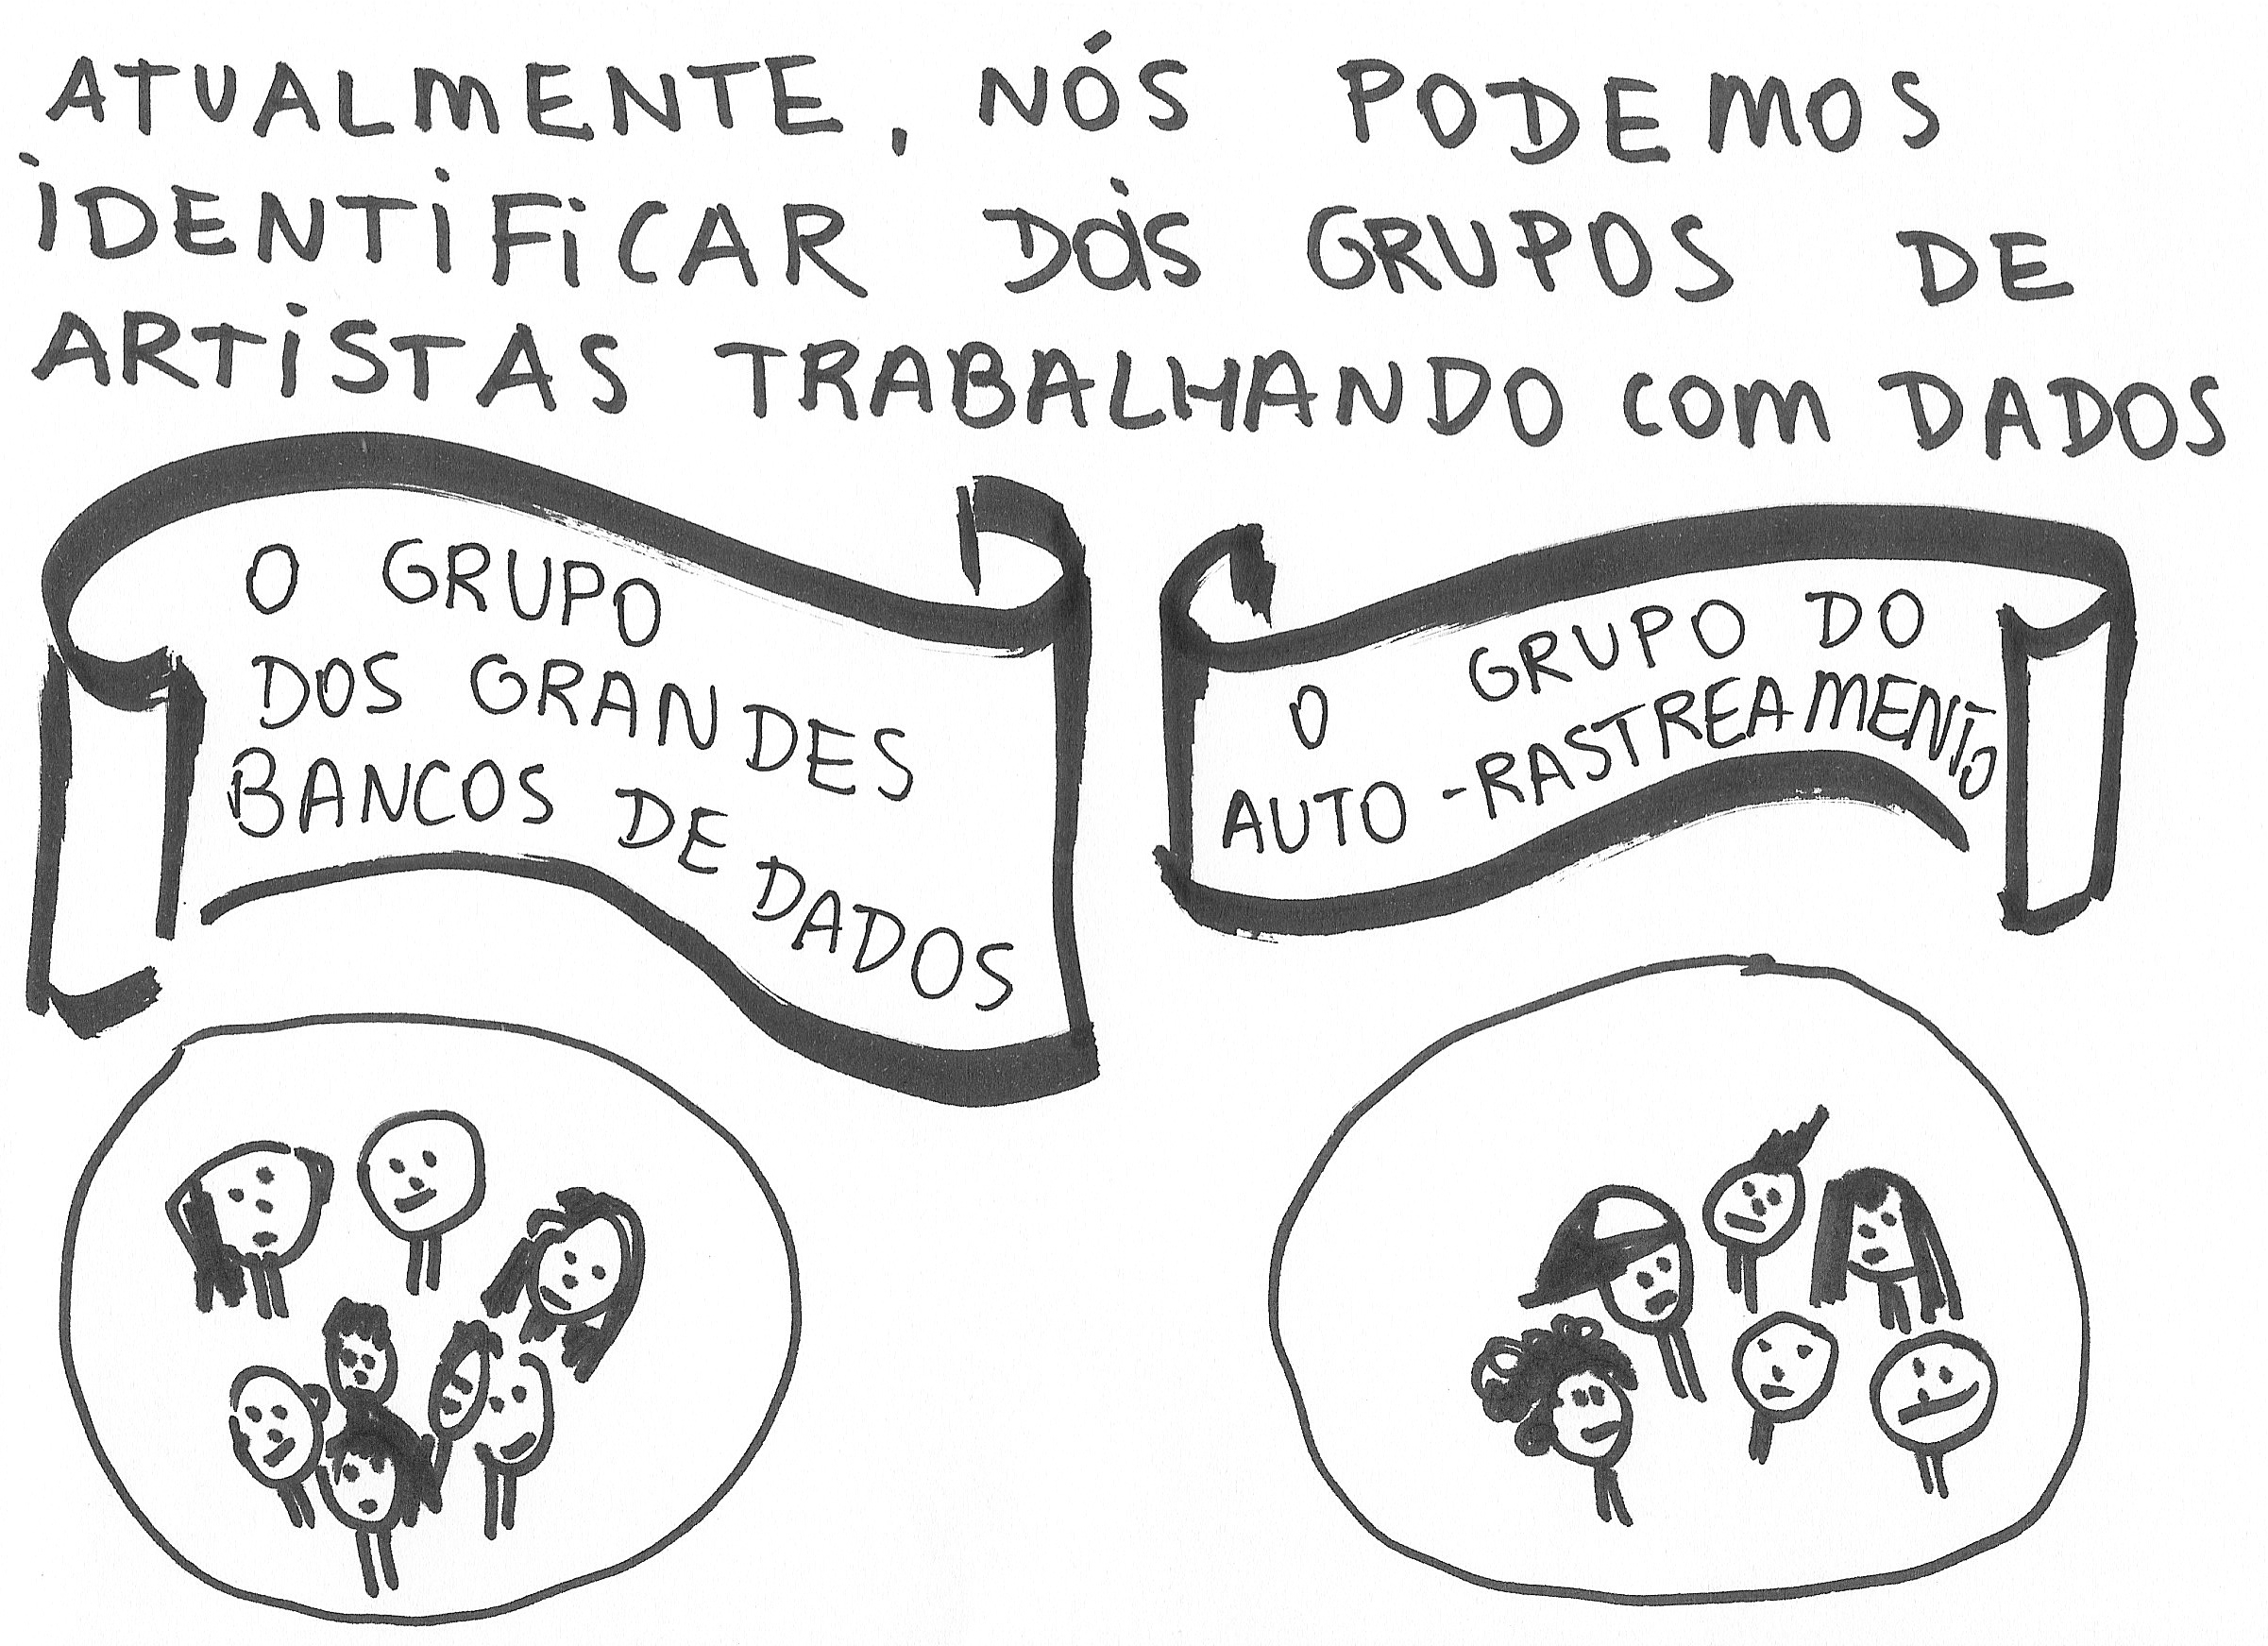 ATUALMENTE, NÓS PODEMOS
IDENTIFICAR DOIS GRUPOS DE
ARTISTAS TRABALHANDO COM DADOS
O GRUPO
DOS GRANDES
BANCOS DE DADOS
O GRUPO DO
AUTO-RASTREAMENTO